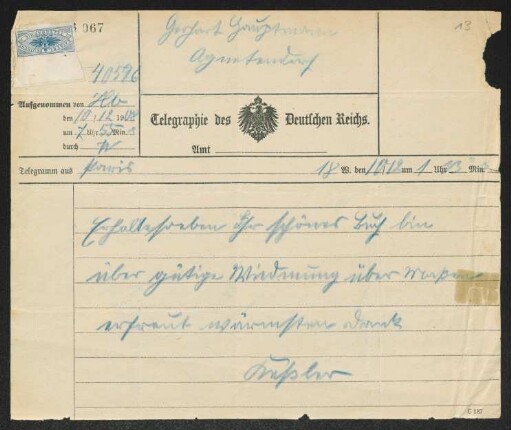 067
Gerhart Hauptmann
13
Agnetendorf
40596
Aufgenommen von Hb
den 10/12 1908
um 7 Uhr 55 Min.
durch
Telegraphie des Deutschen Reichs.
Amt
Telegramm aus Paris
18 W. den 10/12 um 1 Uhr 13 Min.
Erhalte soeben Ihr schönes Buch bin
über gütige Widmung über Maßen
erfreut wärmsten Dank
Keßler
C 187